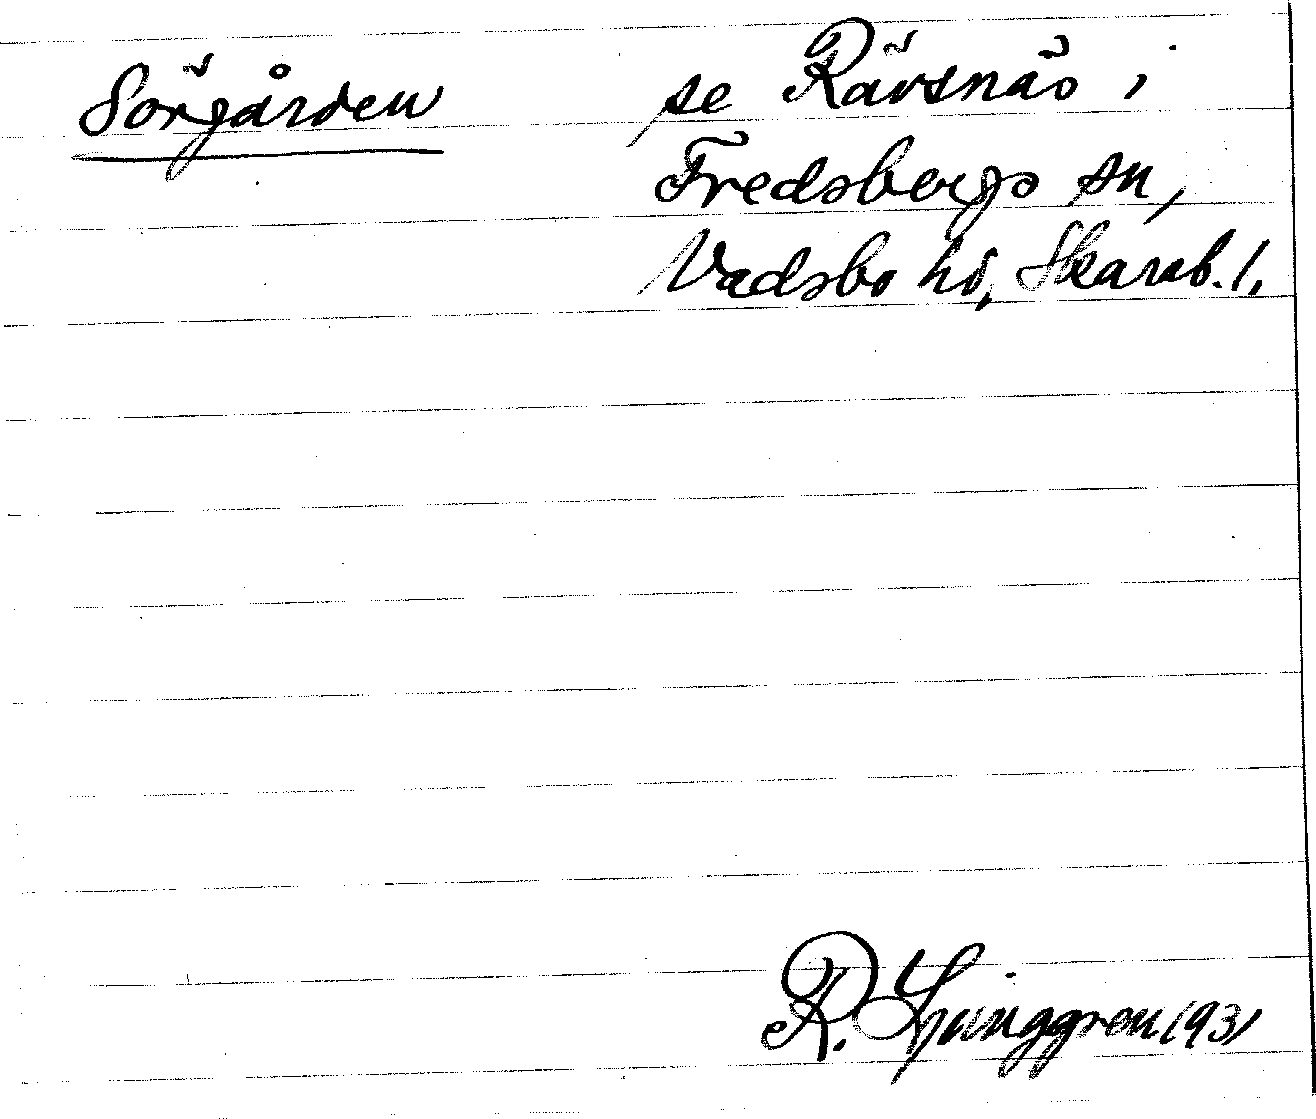 Sörgården se Rävsnäs i
Fredsbergs sn,
Vadsbo hd, Skarab. l.
R. Ljunggren 1931